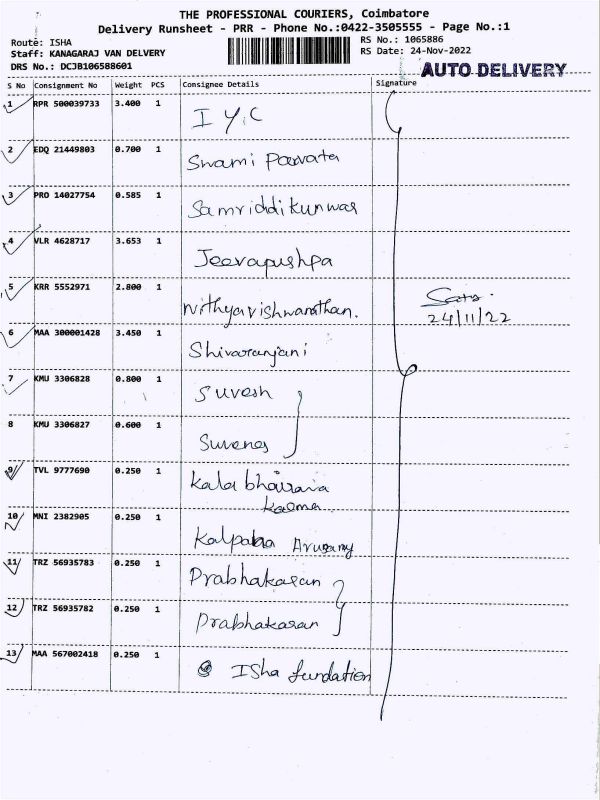 THE PROFESSIONAL COURIERS, Coimbatore
Delivery Runsheet - PRR - Phone No.:0422-3505555 - Page No.:1
Route: ISHA
Staff: KANAGARAJ VAN DELVERY
DRS No.: DCJB106588601
RS No.: 1065886
RS Date: 24-Nov-2022
AUTO DELIVERY
S No Consignment No Weight PCS Consignee Details Signature
1 RPR 500039733 3.400 1
I Y.C
2 EDQ 21449803 0.700 1
Swami Parvata
3 PRO 14027754 0.585 1
Samriddi kunwar
4 VLR 4628717 3.653 1
Jeevapushpa
5 KRR 5552971 2.800 1
Nithyavishwanathan.
24/11/22
6 MAA 300001428 3.450 1
Shivaranjani
7 KMU 3306828 0.800 1
Suvesh
8 KMU 3306827 0.600 1
9 TVL 9777690 0.250 1
Kala bhairava
karma
10 MNI 2382905 0.250 1
Kalpana
11 TRZ 56935783 0.250 1
Prabhakaran
12 TRZ 56935782 0.250 1
Prabhakaran
13 MAA 567002418 0.250 1
ISha fundation